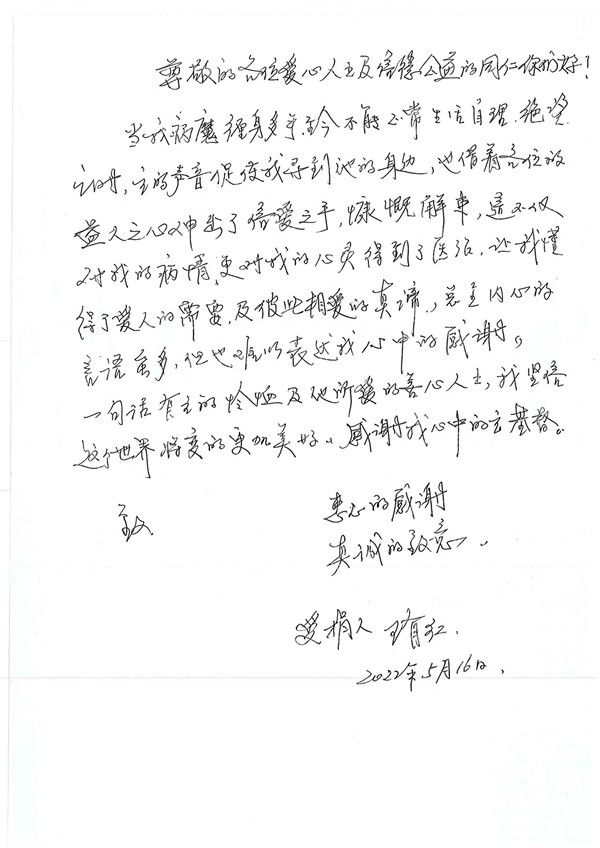 尊敬的各位爱心人士及信德公益的同仁你们好！
当我病魔缠身多年至今不能正常生活自理.绝望
之时，主的声音促使我寻到他的身边，也借着各位的
益人之心伸出了信爱之手，慷慨解束，这不仅
对我的病情，更对我的心灵得到了医治，让我懂
得了爱人的需要，及彼此相爱的真谛。总主内心的
言语虽多，但也难以表达我心中的感谢。
一句话有主的怜恤及他所爱的善心人士，我坚信
这个世界将变的更加美好。感谢我心中的主基督。
致
衷心的感谢
真诚的致意。
受捐人 红.
2022年5月16日.